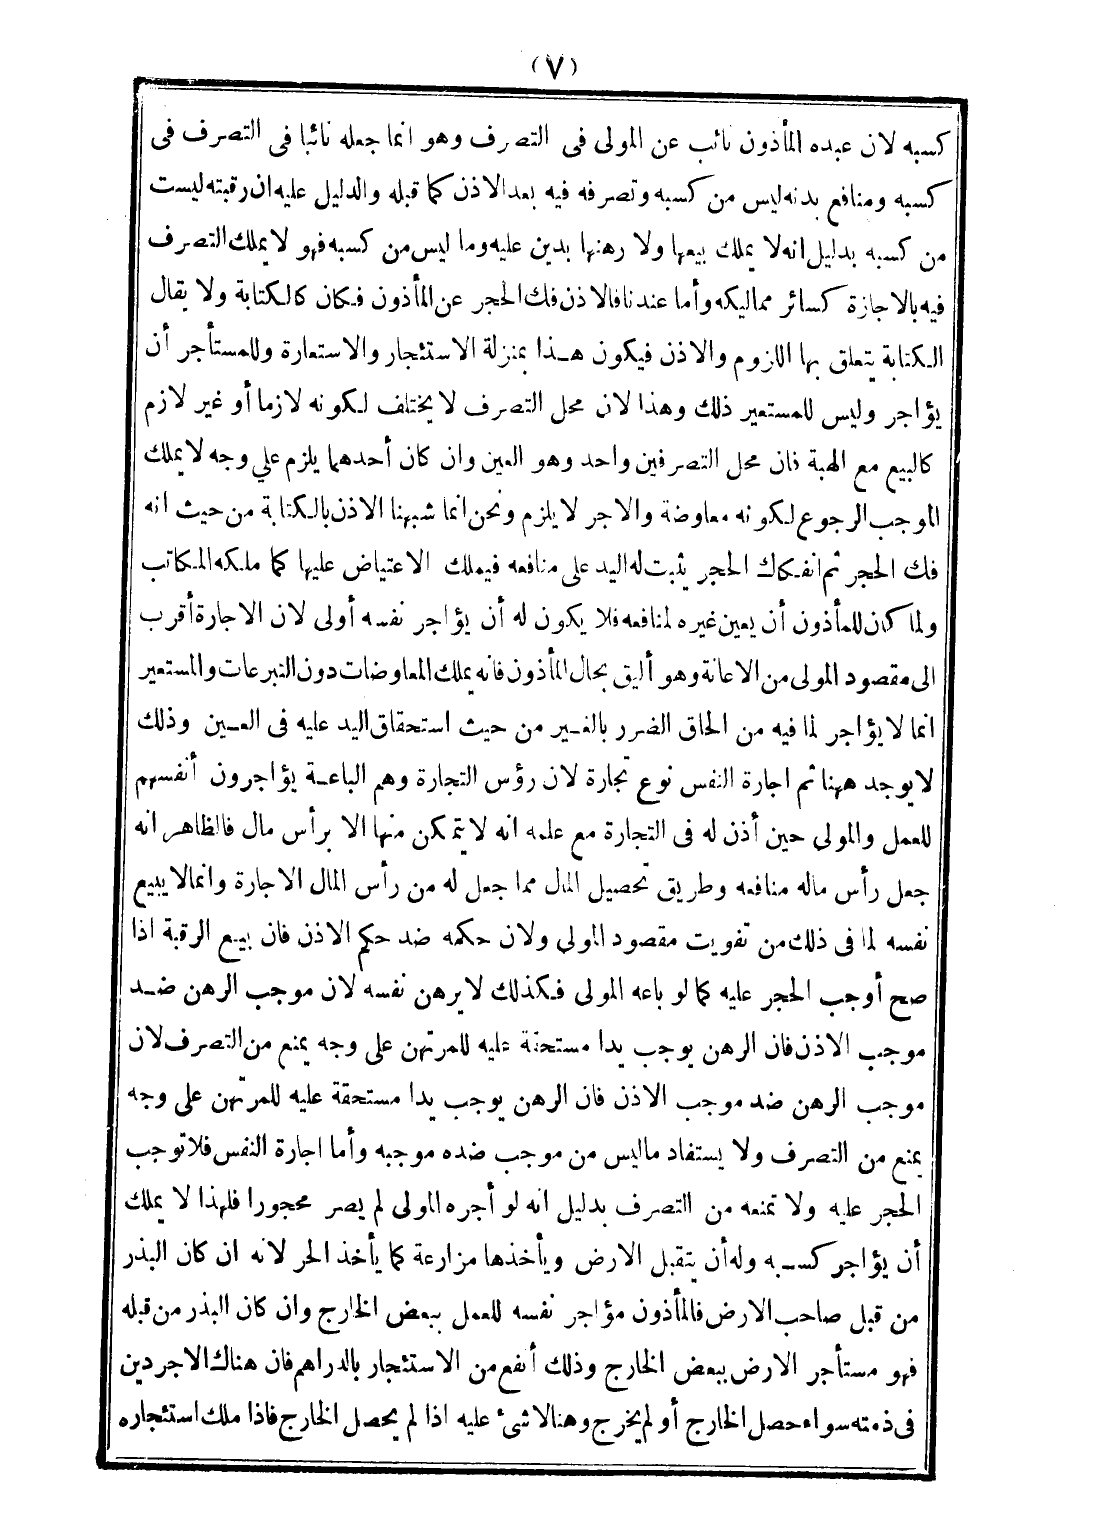 (٧)
كسبه لان عبده المأذون نائب عن المولى فى التصرف وهو انما جعله نائبا فى التصرف فى
كسبه ومنافع بدنه ليس من كسبه وتصرفه فيه بعد الاذن كما قبله والدليل عليه ان رقبته ليست
من كسبه بدليل انه لا يملك بيعها ولا رهنها بدين عليه وما ليس من كسبه فهو لا يملك التصرف
فيه بالاجازة كسائر مماليكه وأما عندنا فالاذن فك الحجر عن المأذون فكان كالكتابة ولا يقال
الكتابة يتعلق بها اللزوم والاذن فيكون هذا بمنزلة الاستئجار والاستعارة وللمستأجر أن
يؤاجر وليس للمستعير ذلك وهذا لان محل التصرف لا يختلف لكونه لازما أو غير لازم
كالبيع مع الهبة فان محل التصرفين واحد وهو العين وان كان أحدهما يلزم على وجه لا يملك
الموجب الرجوع لكونه معاوضة والاجر لا يلزم ونحن انما شبهنا الاذن بالكتابة من حيث انه
فك الحجر ثم انفكاك الحجر يثبت له اليد على منافعه فيملك الاعتياض عليها كما ملكه المكاتب
ولما كان للمأذون أن يعين غيره لمنافعه فلا يكون له أن يؤاجر نفسه أولى لان الاجارة أقرب
الى مقصود المولى من الاعانة وهو أليق بحال المأذون فانه يملك المعاوضات دون التبرعات والمستعير
انما لا يؤاجر لما فيه من الحاق الضرر بالغير من حيث استحقاق اليد عليه فى العين وذلك
لا يوجد ههنا ثم اجارة النفس نوع تجارة لان رؤس التجارة وهم الباعة يؤاجرون أنفسهم
للعمل والمولى حين أذن له فى التجارة مع علمه انه لا يتمكن منها الا برأس مال فالظاهر انه
جعل رأس ماله منافعه وطريق تحصيل المال مما جعل له من رأس المال الاجارة وانما لا يبيع
نفسه لما فى ذلك من تفويت مقصود المولى ولان حكمه ضد حكم الاذن فان بيع الرقبة اذا
صح أوجب الحجر عليه كما لو باعه المولى فكذلك لا يرهن نفسه لان موجب الرهن ضد
موجب الاذن فان الرهن يوجب يدا مستحقة عليه للمرتهن على وجه يمنع من التصرف لان
موجب الرهن ضد موجب الاذن فان الرهن يوجب يدا مستحقة عليه للمرتهن على وجه
يمنع من التصرف ولا يستفاد ما ليس من موجب ضده موجبه وأما اجارة النفس فلا توجب
الحجر عليه ولا تمنعه من التصرف بدليل انه لو أجره المولى لم يصر محجورا فلهذا لا يملك
أن يؤاجر كسبه وله أن يتقبل الارض ويأخذها مزارعة كما يأخذ الحر لانه ان كان البذر
من قبل صاحب الارض فالمأذون مؤاجر نفسه للعمل ببعض الخارج وان كان البذر من قبله
فهو مستأجر الارض ببعض الخارج وذلك أنفع من الاستئجار بالدراهم فان هناك الاجر دين
فى ذمته سواء حصل الخارج أو لم يخرج وهنا لا شئ عليه اذا لم يحصل الخارج فاذا ملك استئجاره